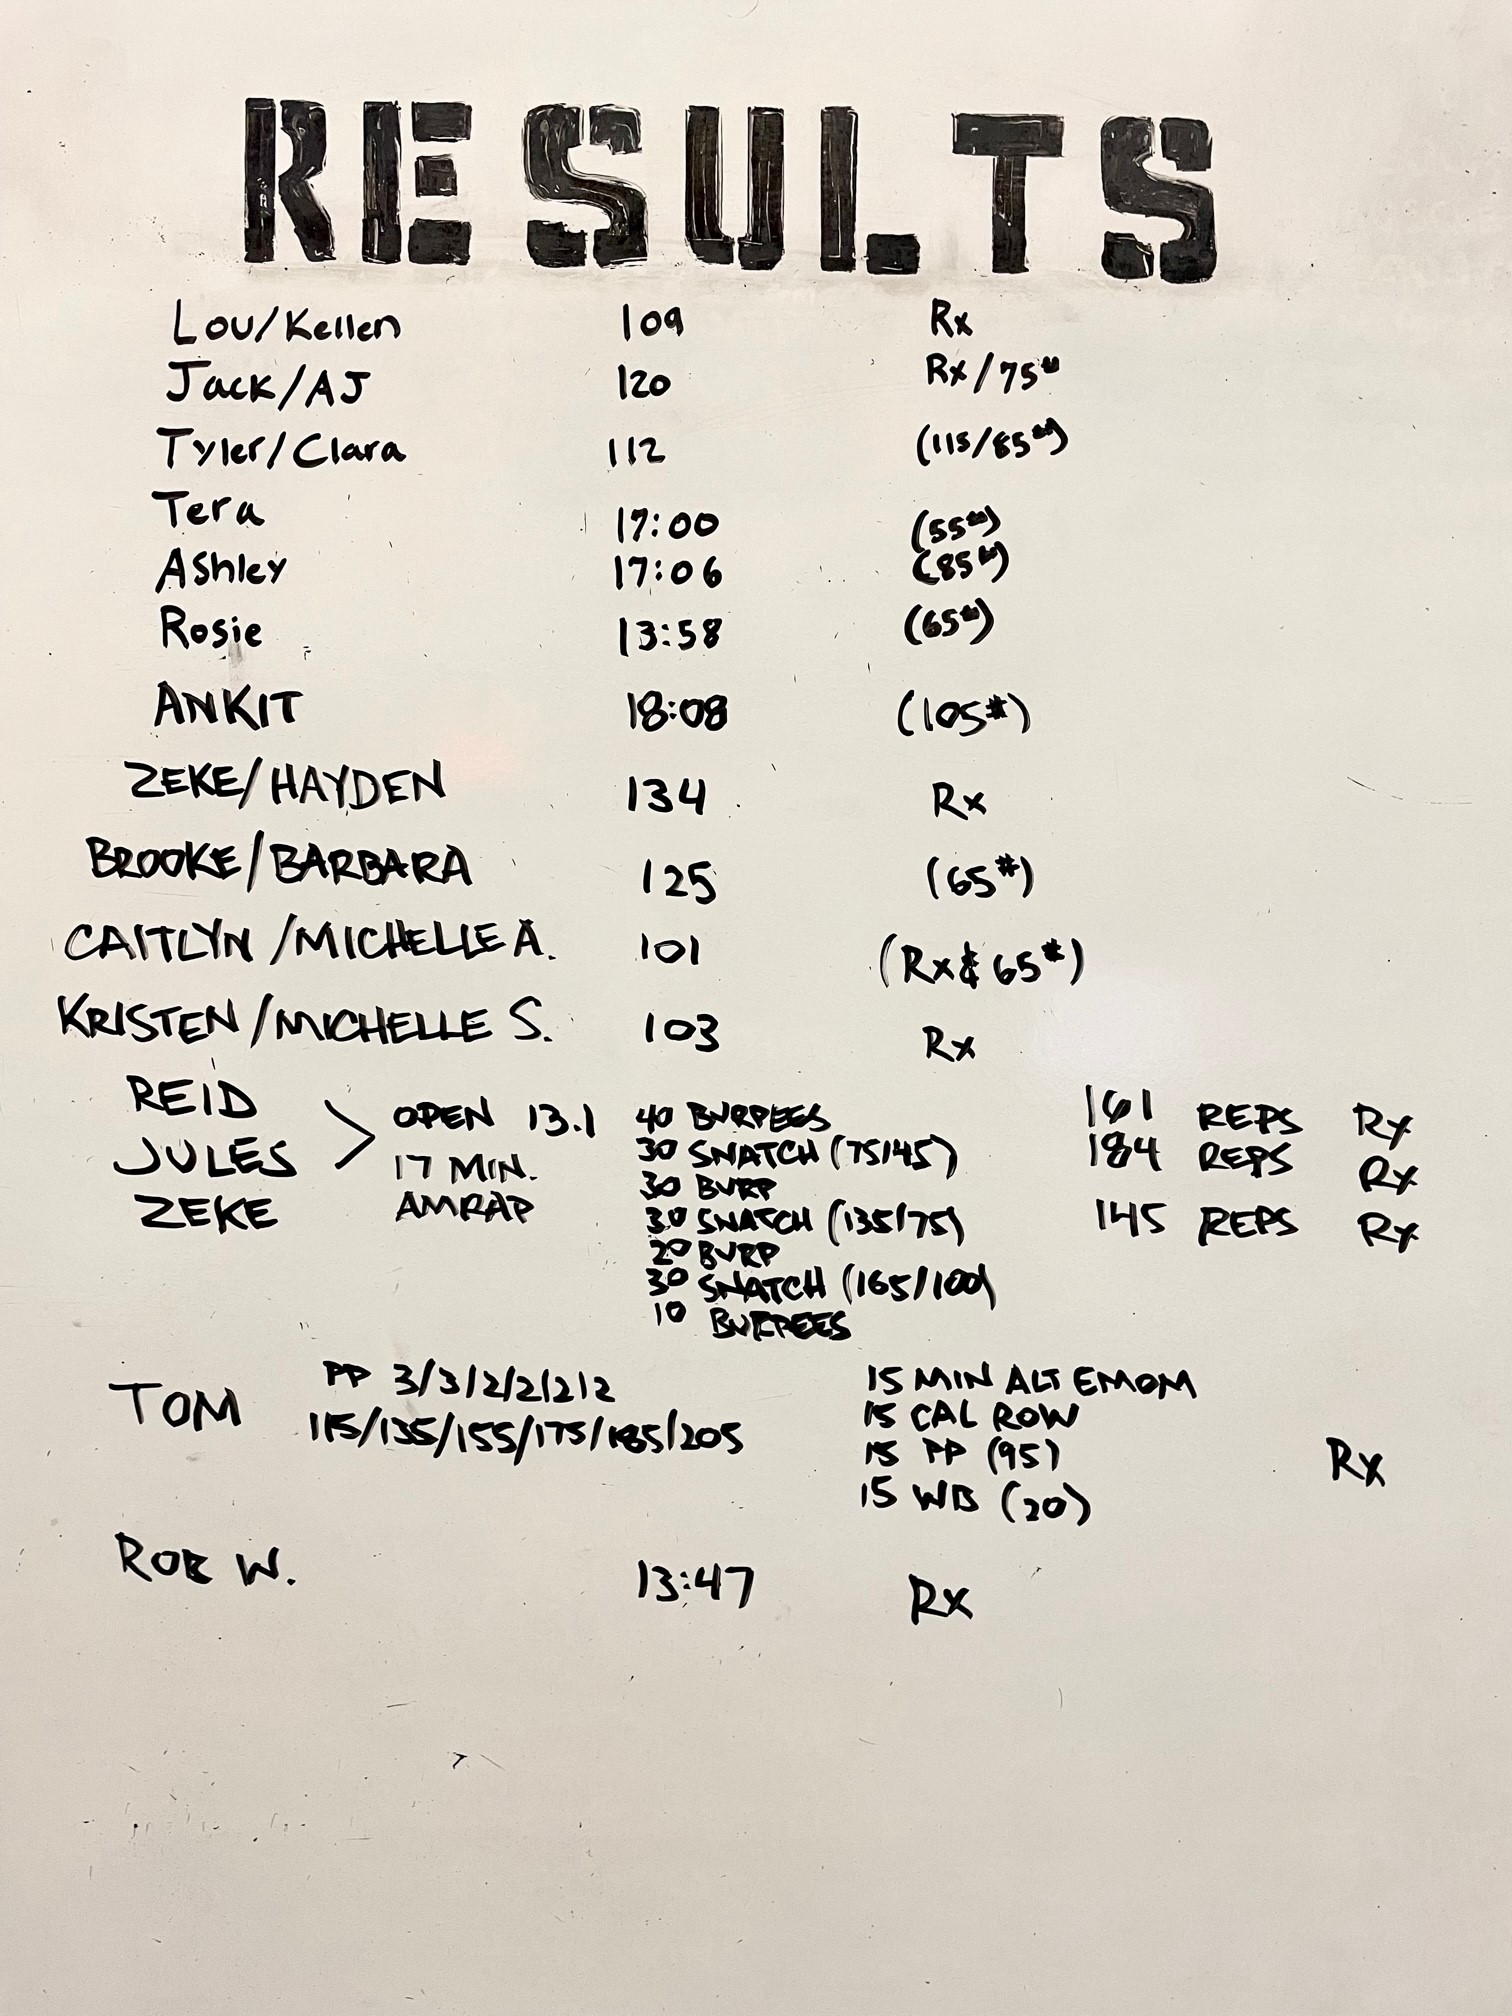 RESULTS
Lou/Kellen 109 Rx
Jack/AJ 120 Rx/75#
Tyler/Clara 112 (115/85#)
Tera 17:00 (55#)
Ashley 17:06 (85#)
Rosie 13:58 (65#)
ANKIT 18:08 (105#)
ZEKE/HAYDEN 134 Rx
BROOKE/BARBARA 125 (65#)
CAITLYN/MICHELLE A. 101 (Rx & 65#)
KRISTEN/MICHELLE S. 103 Rx
REID > OPEN 13.1 40 BURPEES 161 REPS Rx
JULES 17 MIN. 30 SNATCH (75/45) 184 REPS Rx
30 BURP
ZEKE AMRAP 30 SNATCH (135/75) 145 REPS Rx
20 BURP
30 SNATCH (165/100)
10 BURPEES
TOM PP 3/3/2/2/2/2 15 MIN ALT EMOM
115/135/155/175/185/205 15 CAL ROW
15 PP (95) Rx
15 WB (20)
ROB W. 13:47 Rx